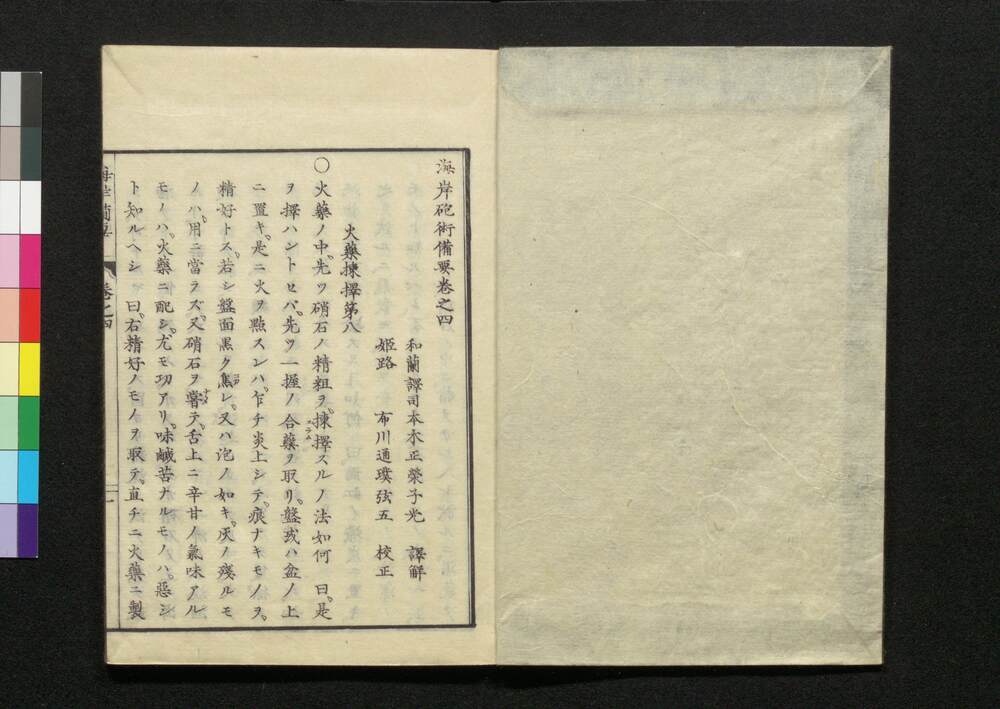 海岸砲術備要卷之四
和蘭譯司本木正榮子光　譯解
姫路　布川通璞弦五　校正
火藥揀擇第八
〇火藥ノ中。先ツ硝石ノ精粗ヲ。揀擇スルノ法如何　曰。是
ヲ擇ハントセバ。先ツ一握ノ合藥ヲ取リ。盤或ハ盆ノ上
ニ置キ。是ニ火ヲ點スンハ。乍チ炎上シテ。痕ナキモノヲ。
精好トス。若シ盤面黒ク焦レ。又ハ泡ノ如キ。灰ノ殘ルモ
ノハ。用ニ當ラズ。又硝石ヲ甞テ。舌上ニ辛甘ノ氣味アル
モノハ。火藥ニ配シ。尤モ功アリ。味鹹苦ナルモノハ。惡シ
ト知ルヘシ　曰。右精好ノモノヲ取テ。直チニ火藥ニ製